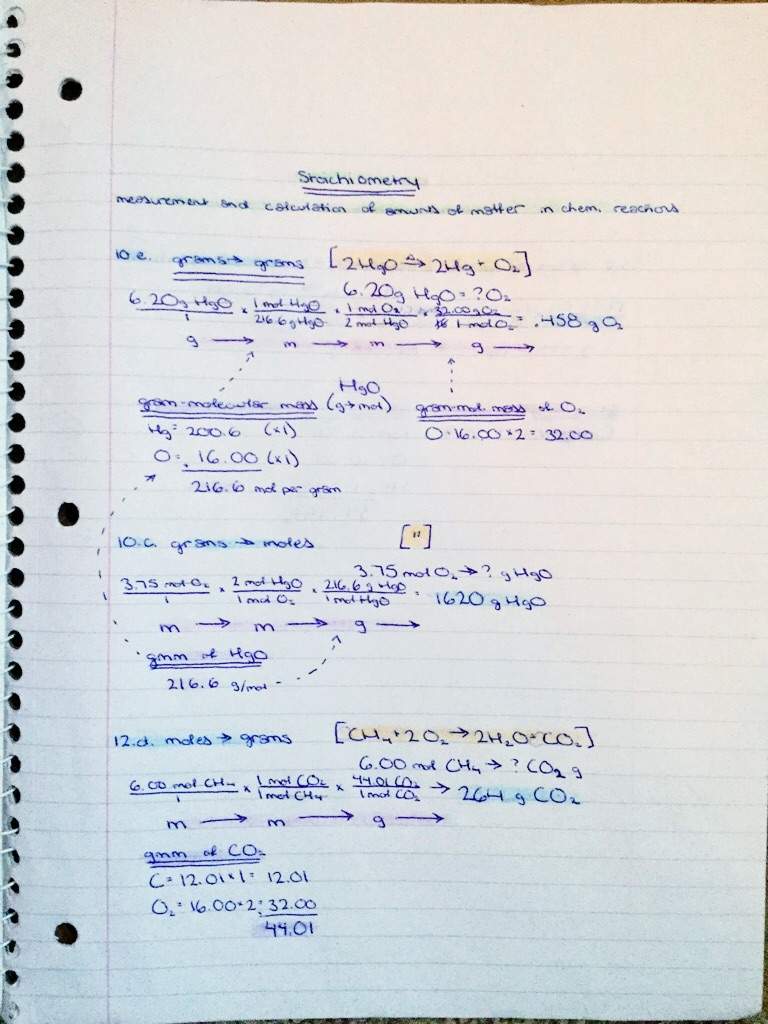 Stoichiometry
measurement and calculation of amounts of matter in chem. reactions
10.e. grams → grams [2HgO →Δ 2Hg + O₂]
6.20g HgO = ? O₂
6.20g HgO/1 × 1 mol HgO/216.6 g HgO × 1 mol O₂/2 mol HgO × 32.00g O₂/1 mol O₂ = .458 g O₂
g → m → m → g →
HgO
gram-molecular mass (g→mol) gram-mol. mass of O₂
Hg = 200.6 (×1) O = 16.00 × 2 = 32.00
O = 16.00 (×1)
216.6 mol per gram
10.c. grams → moles ["]
3.75 mol O₂ → ? g HgO
3.75 mol O₂/1 × 2 mol HgO/1 mol O₂ × 216.6 g HgO/1 mol HgO = 1620 g HgO
m → m → g →
gmm of HgO
216.6 g/mol
12.d. moles → grams [CH₄ + 2O₂ → 2H₂O + CO₂]
6.00 mol CH₄ → ? CO₂ g
6.00 mol CH₄/1 × 1 mol CO₂/1 mol CH₄ × 44.01 CO₂/1 mol CO₂ → 264 g CO₂
m → m → g →
gmm of CO₂
C = 12.01 × 1 = 12.01
O₂ = 16.00 × 2 = 32.00
44.01